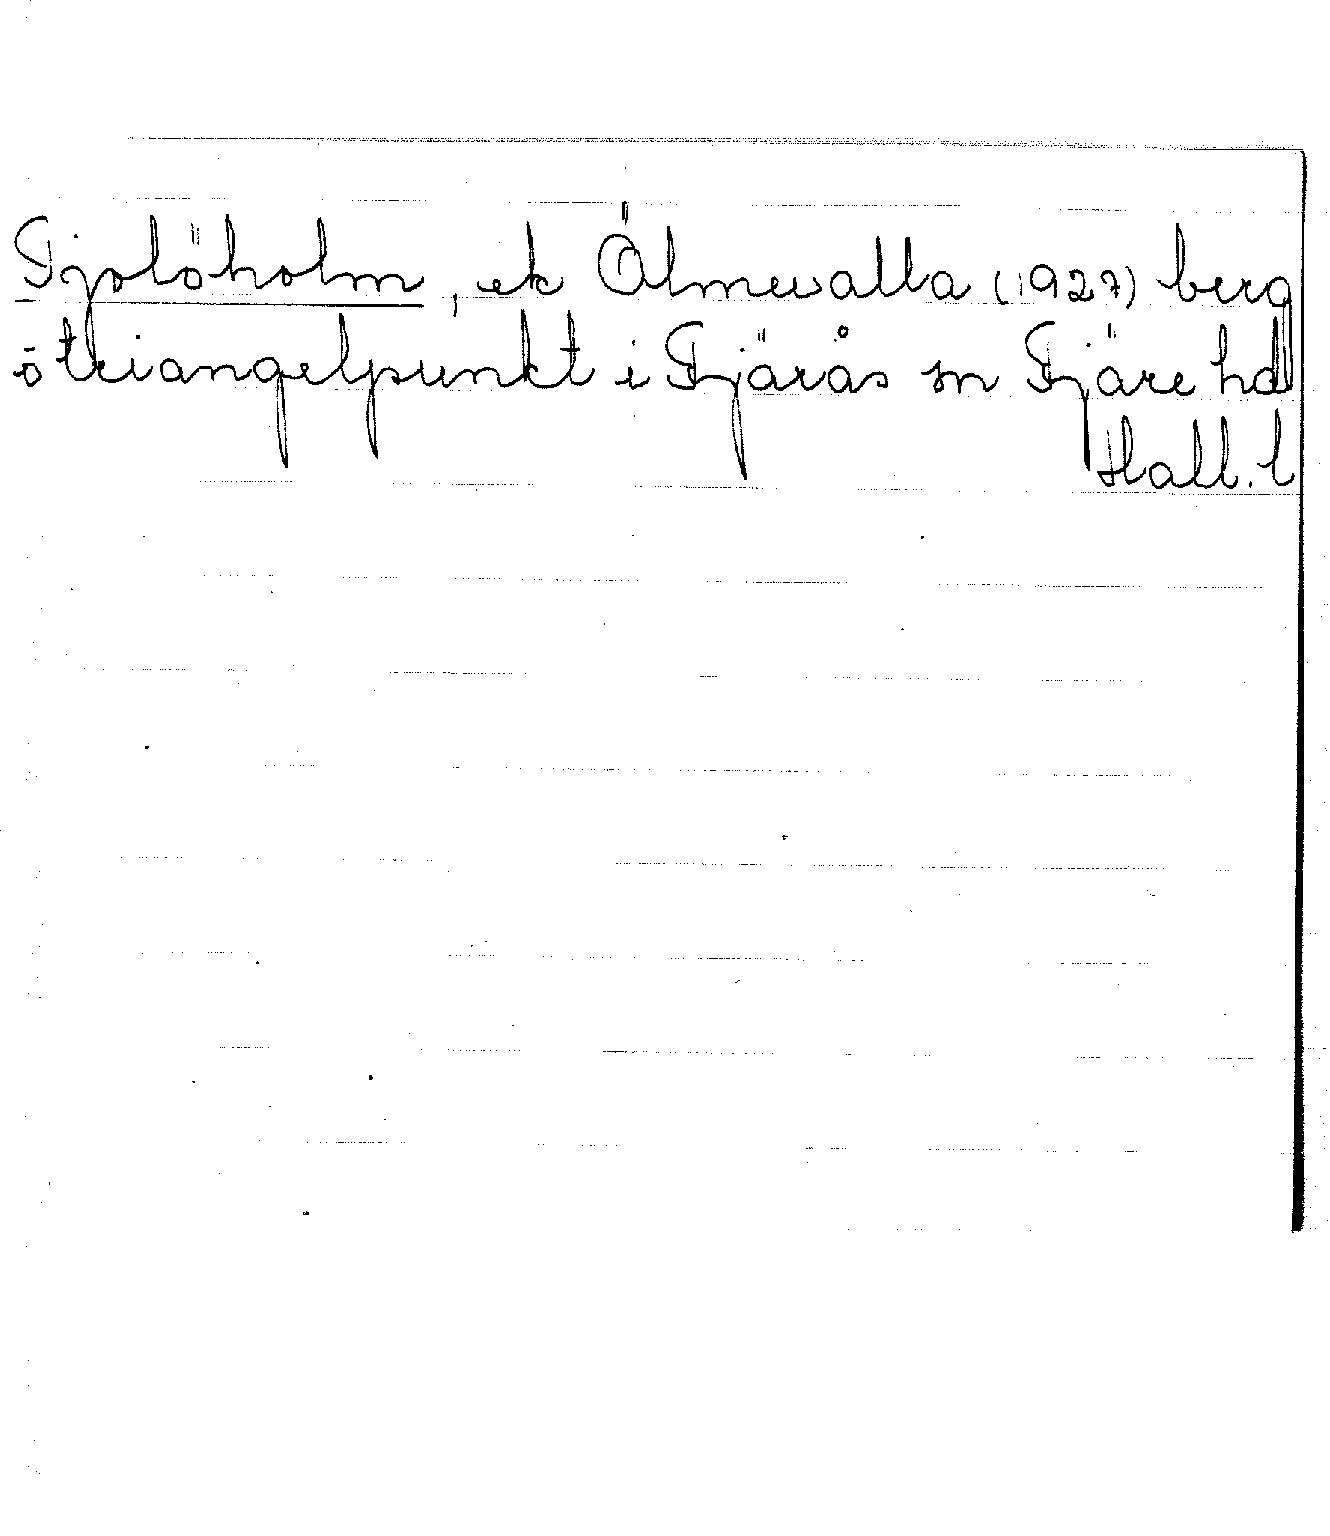 Fjolöholm, ek Ölmevalla (1927) berg
o triangelpunkt i Fjärås sn Fjäre hd
Hall. l